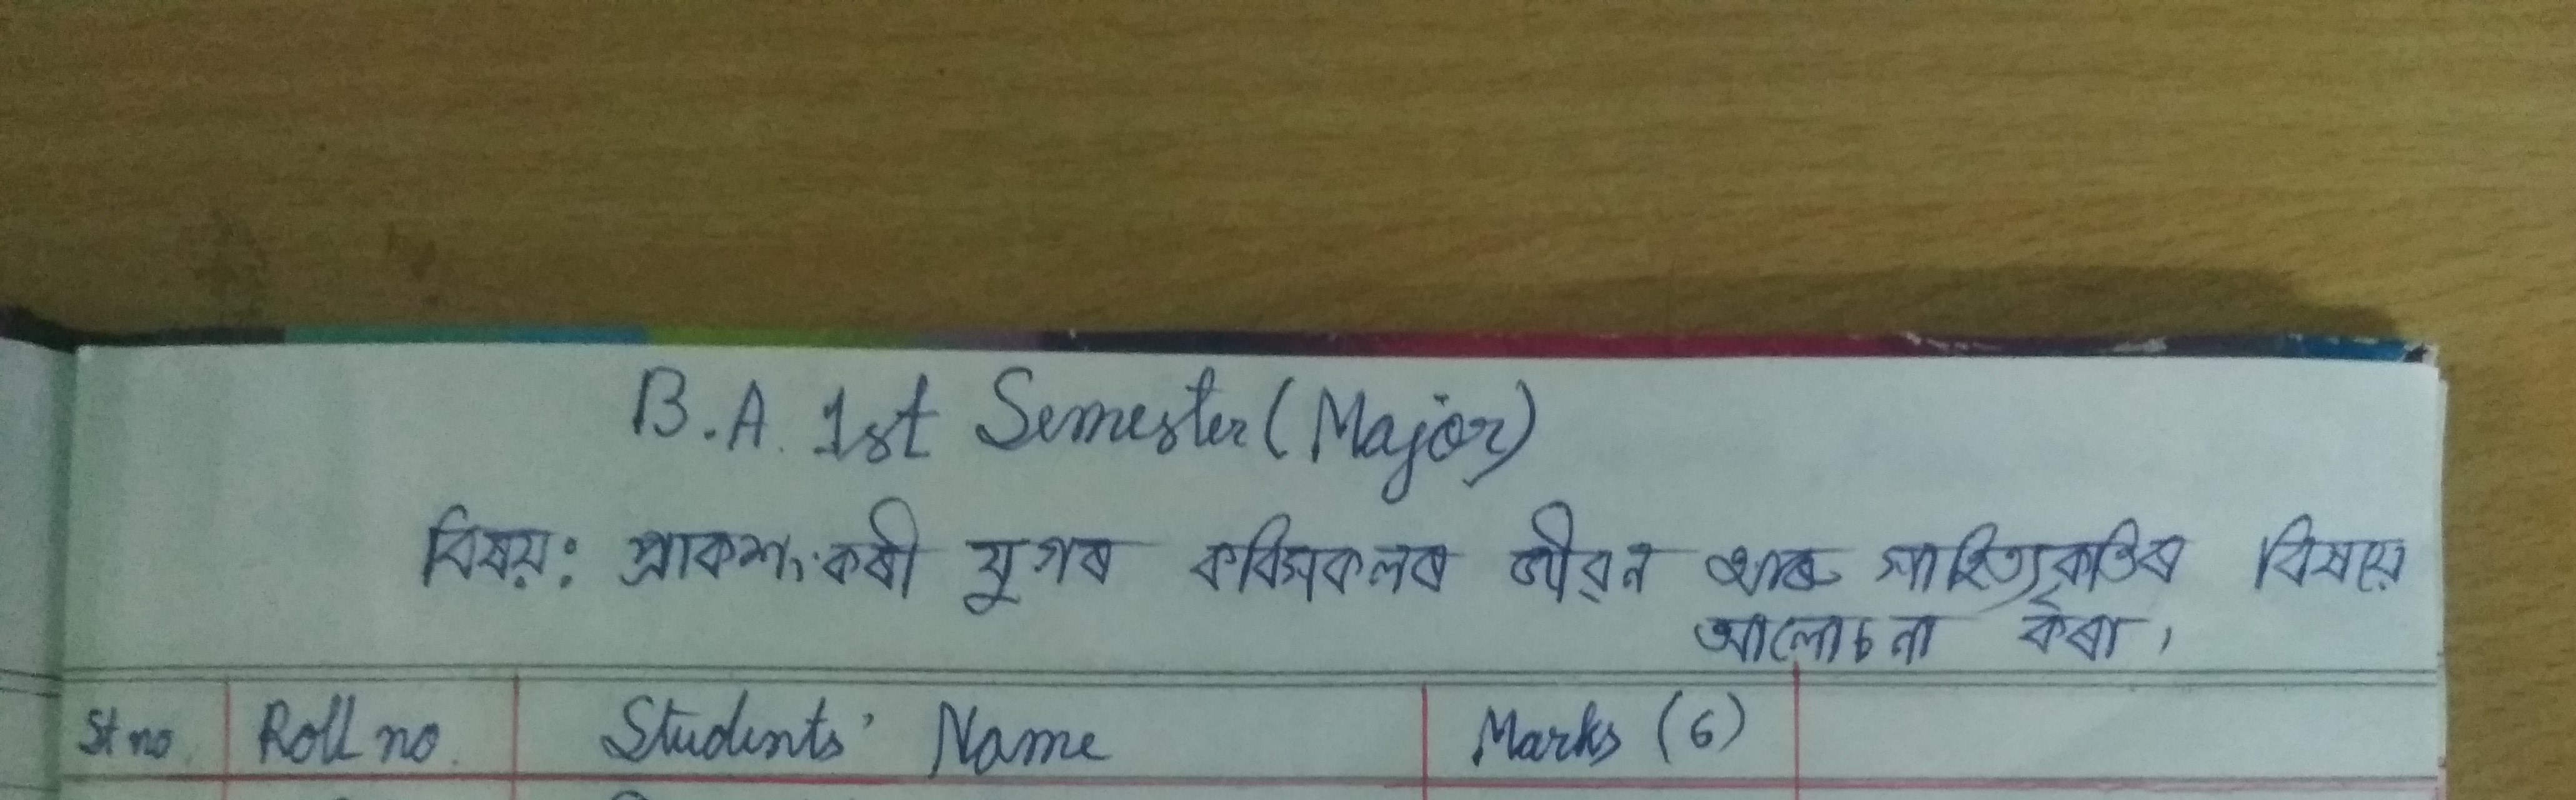 B.A. 1st Semester (Major)
বিষয়: প্ৰাকশংকৰী যুগৰ কবিসকলৰ জীৱন আৰু সাহিত্যকৃতিৰ বিষয়ে
আলোচনা কৰা,
Sl no. Roll no. Students' Name Marks (6)